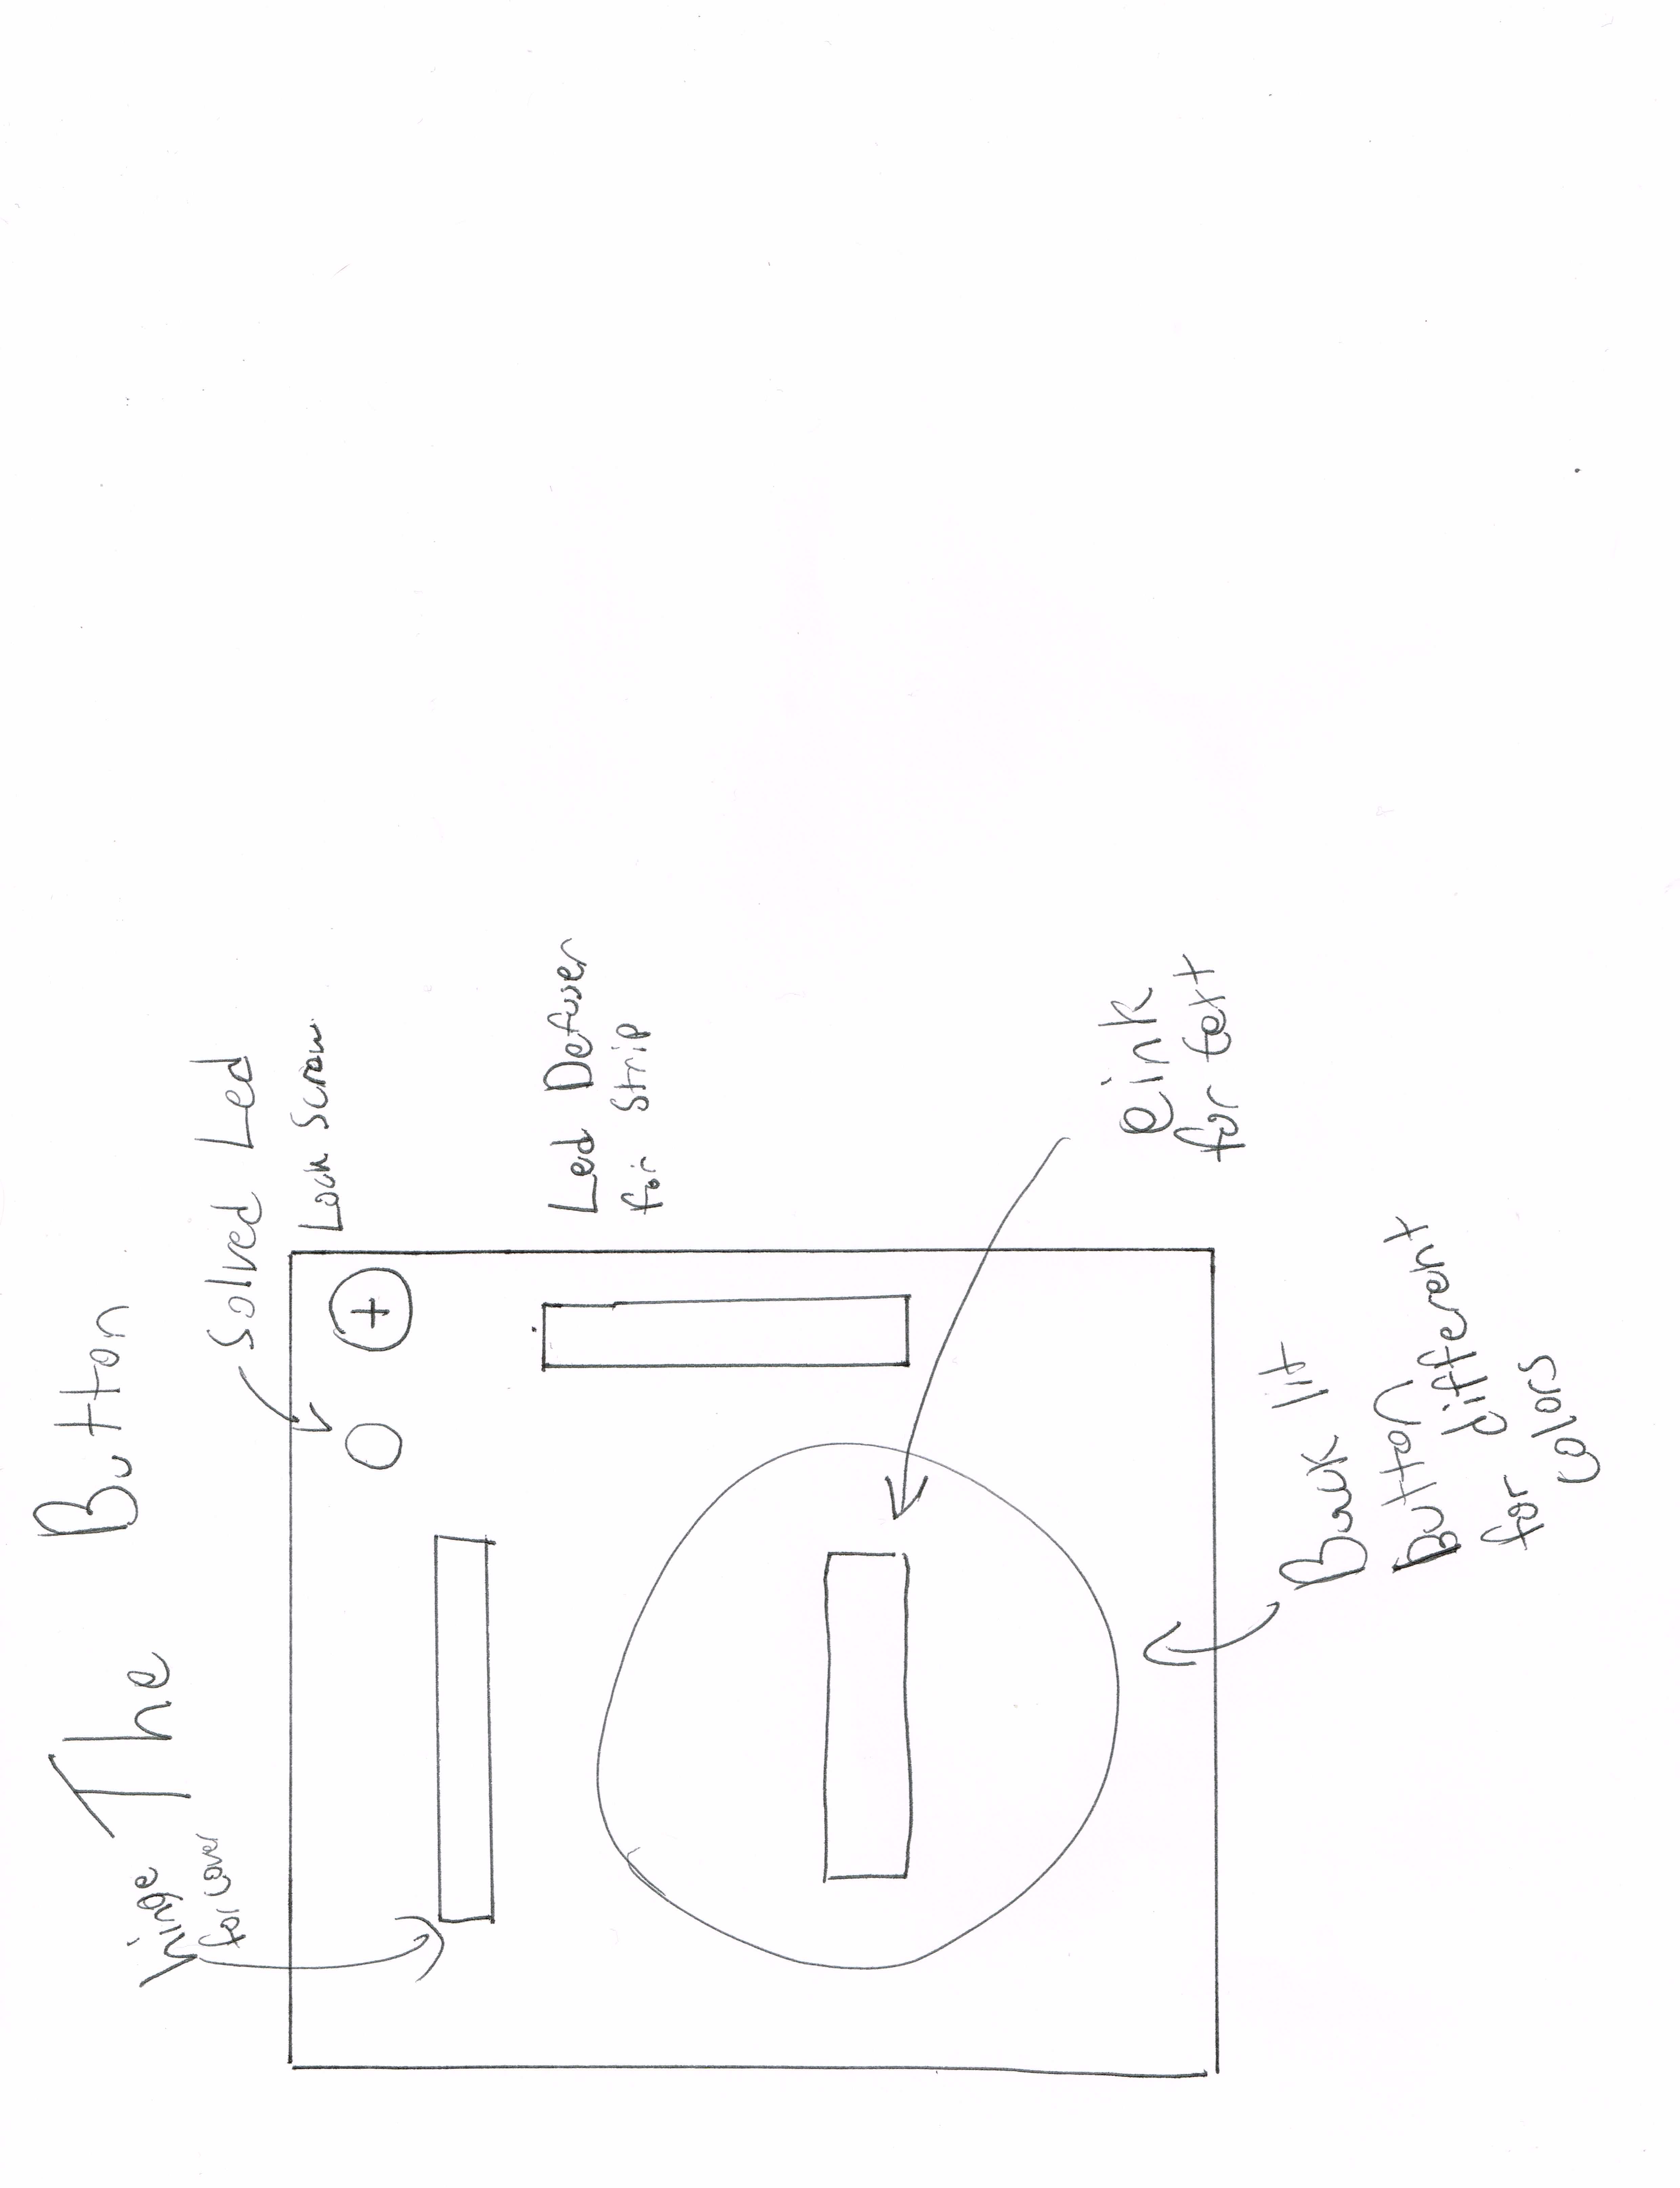 The Button
hinge
for cover
Solved Led
Lock Screw
+
Led Defuser
for Strip
eink
for text
Back lit
Button
for different
colors